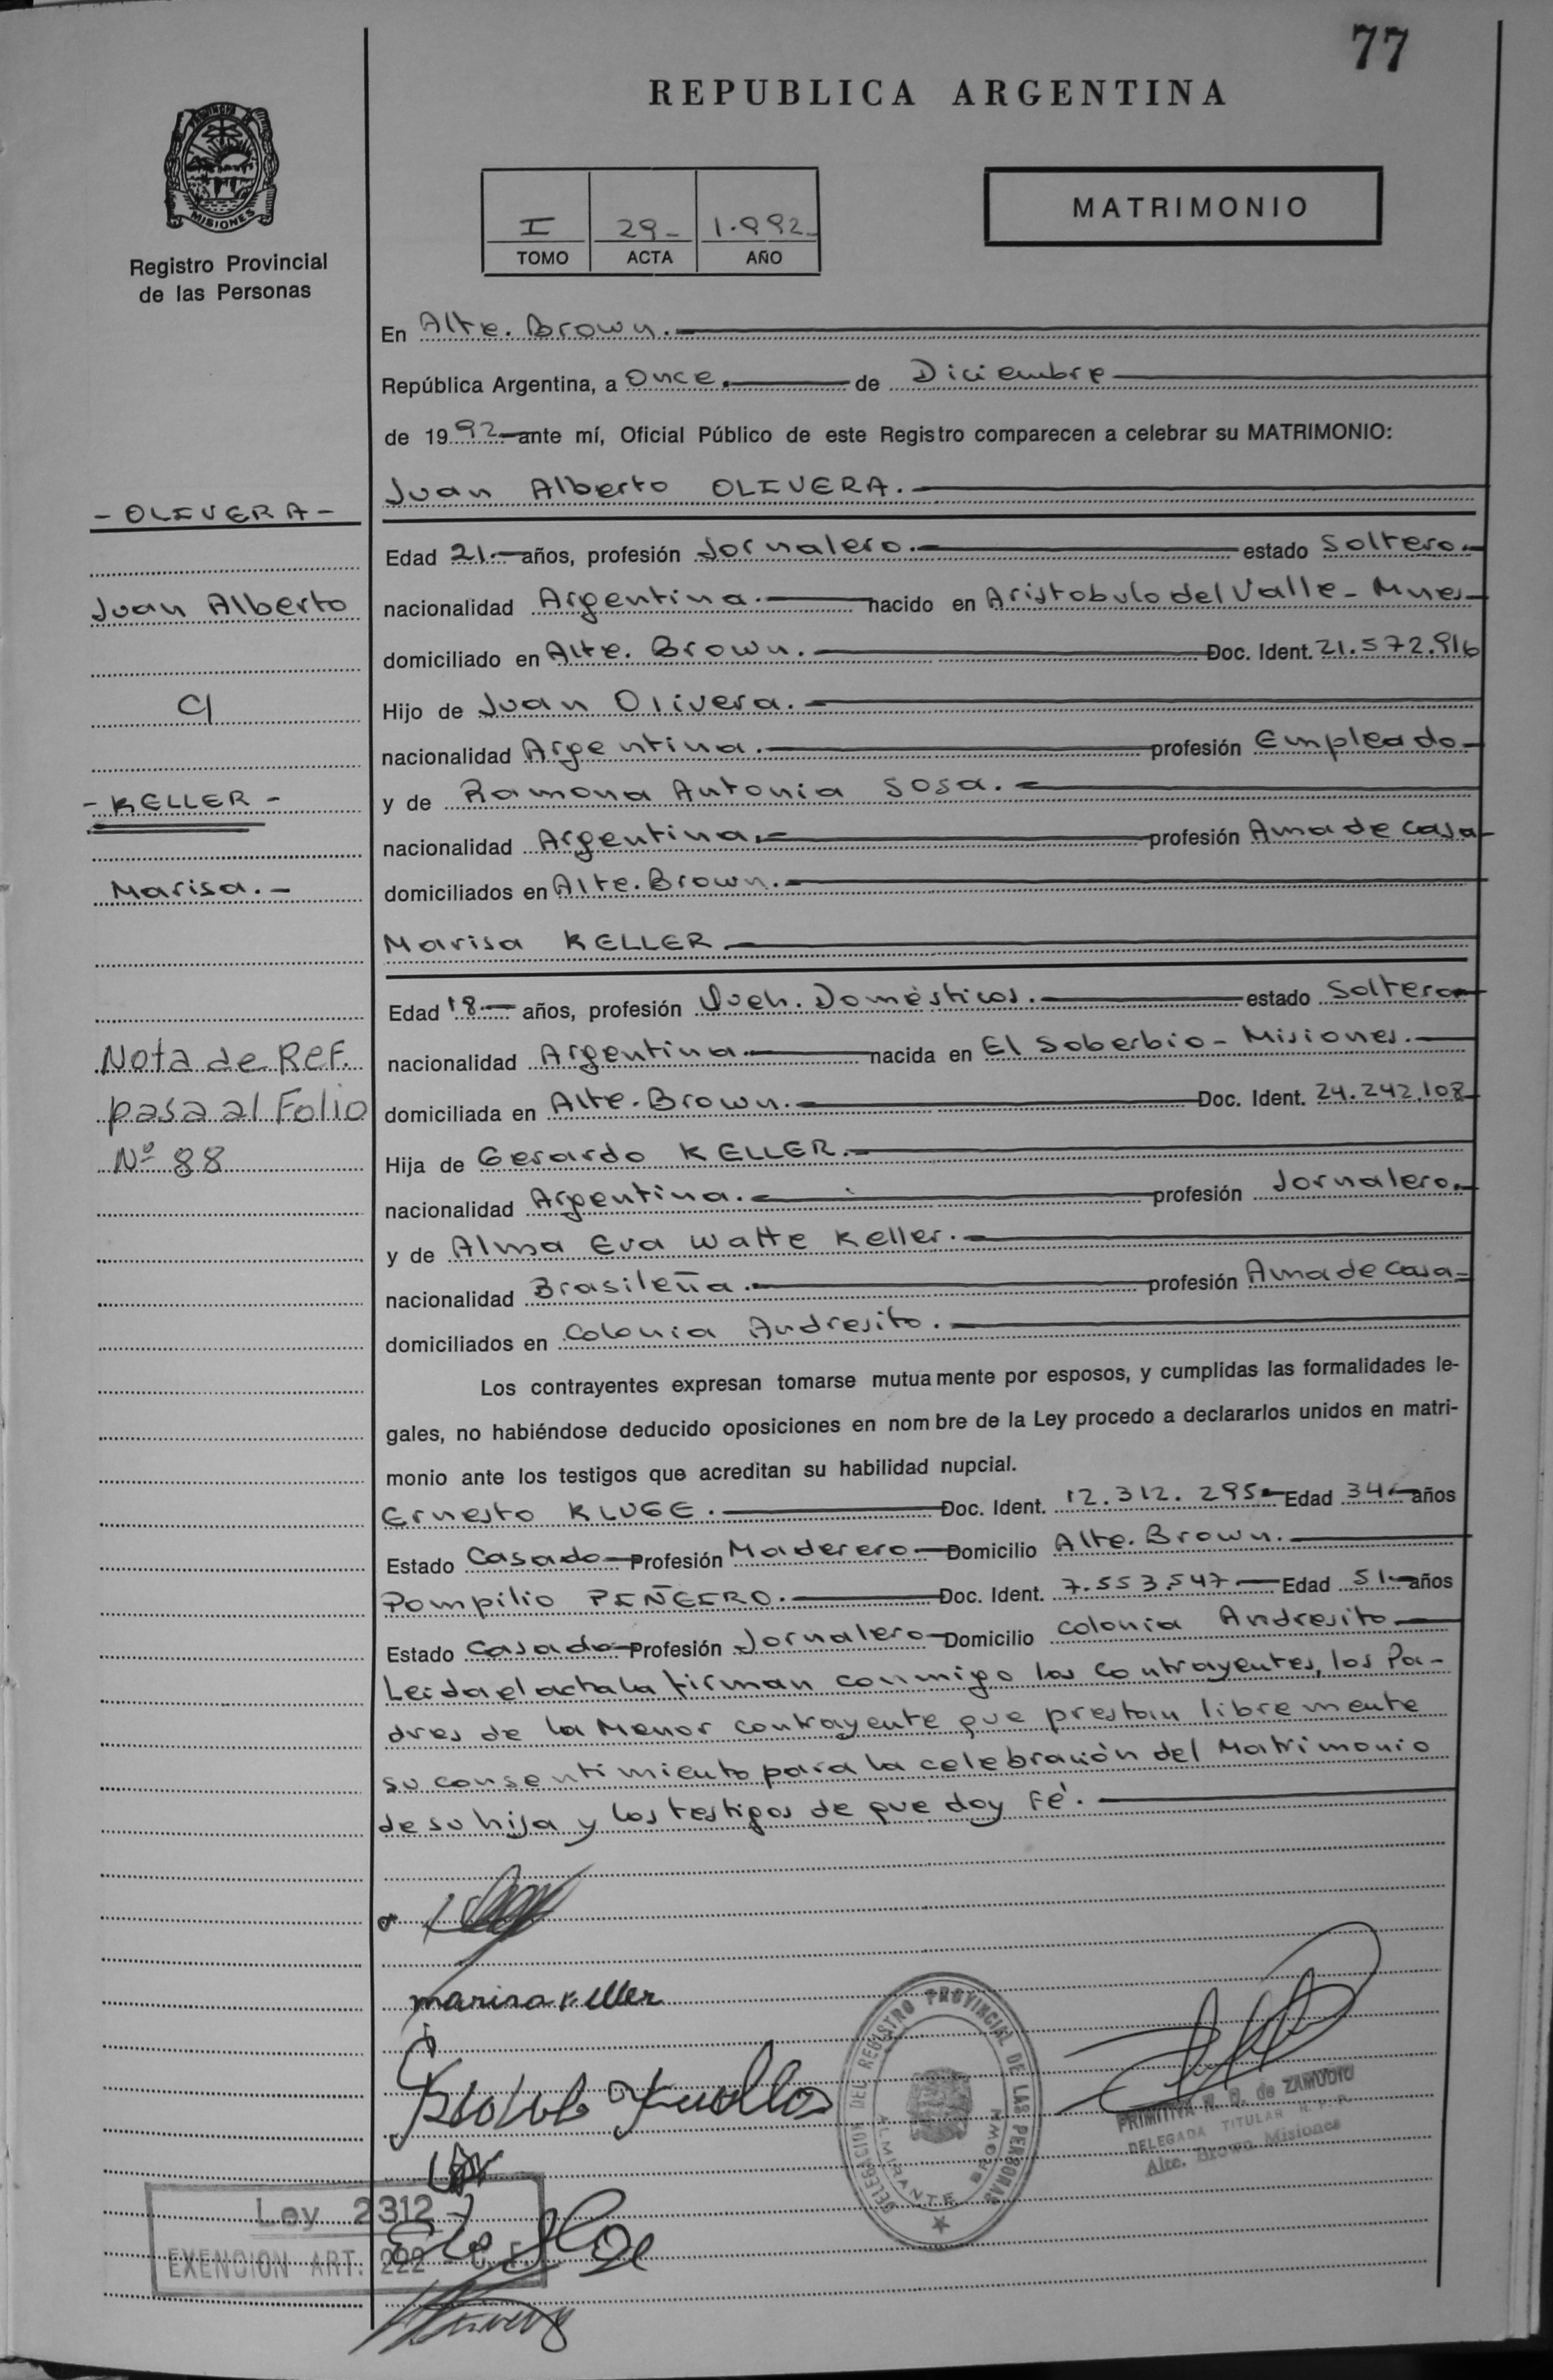 77
REPUBLICA ARGENTINA
MISIONES
Registro Provincial
de las Personas
I 29- 1.992-
TOMO ACTA AÑO
MATRIMONIO
En Alte. Brown.
República Argentina, a Once. de Diciembre
de 1992 ante mí, Oficial Público de este Registro comparecen a celebrar su MATRIMONIO:
Juan Alberto OLIVERA.
- OLIVERA -
Edad 21.- años, profesión Jornalero. estado Soltero.
Juan Alberto
nacionalidad Argentina. nacido en Aristobulo del Valle - Mnes
domiciliado en Alte. Brown. Doc. Ident. 21.572.916
C/
Hijo de Juan Olivera.
nacionalidad Argentina. profesión Empleado
- KELLER -
y de Ramona Antonia Sosa.
nacionalidad Argentina. profesión Ama de casa
Marisa. -
domiciliados en Alte. Brown.
Marisa KELLER
Edad 18.- años, profesión Queh. Domésticos. estado Soltera
Nota de Ref.
nacionalidad Argentina. nacida en El Soberbio - Misiones.
pasa al Folio
domiciliada en Alte. Brown. Doc. Ident. 24.242.108
Nº 88
Hija de Gerardo KELLER.
nacionalidad Argentina. profesión Jornalero.
y de Alma Eva Watte Keller.
nacionalidad Brasileña. profesión Ama de casa
domiciliados en Colonia Andresito.
Los contrayentes expresan tomarse mutuamente por esposos, y cumplidas las formalidades le-
gales, no habiéndose deducido oposiciones en nombre de la Ley procedo a declararlos unidos en matri-
monio ante los testigos que acreditan su habilidad nupcial.
Ernesto KLUGE. Doc. Ident. 12.312.295 Edad 34 años
Estado Casado Profesión Maderero Domicilio Alte. Brown.
Pompilio Doc. Ident. 7.553.547 Edad 51 años
Estado Casado Profesión Jornalero Domicilio Colonia Andresito
Leida el acta la firman conmigo los contrayentes, los Pa-
dres de la Menor contrayente que prestan libremente
su consentimiento para la celebración del Matrimonio
de su hija y los testigos de que doy Fé.
marisa Keller
DELEGACION DEL REGISTRO PROVINCIAL DE LAS PERSONAS
ALMIRANTE BROWN
PRIMITIVA N. D. de ZAMUDIO
DELEGADA TITULAR R. P. P.
Alte. Brown Misiones
Ley 2312
EXENCION ART. 222 - C. F.